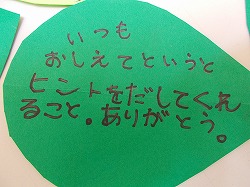 いつも
おしえてというと
ヒントをだしてくれ
ること。ありがとう。